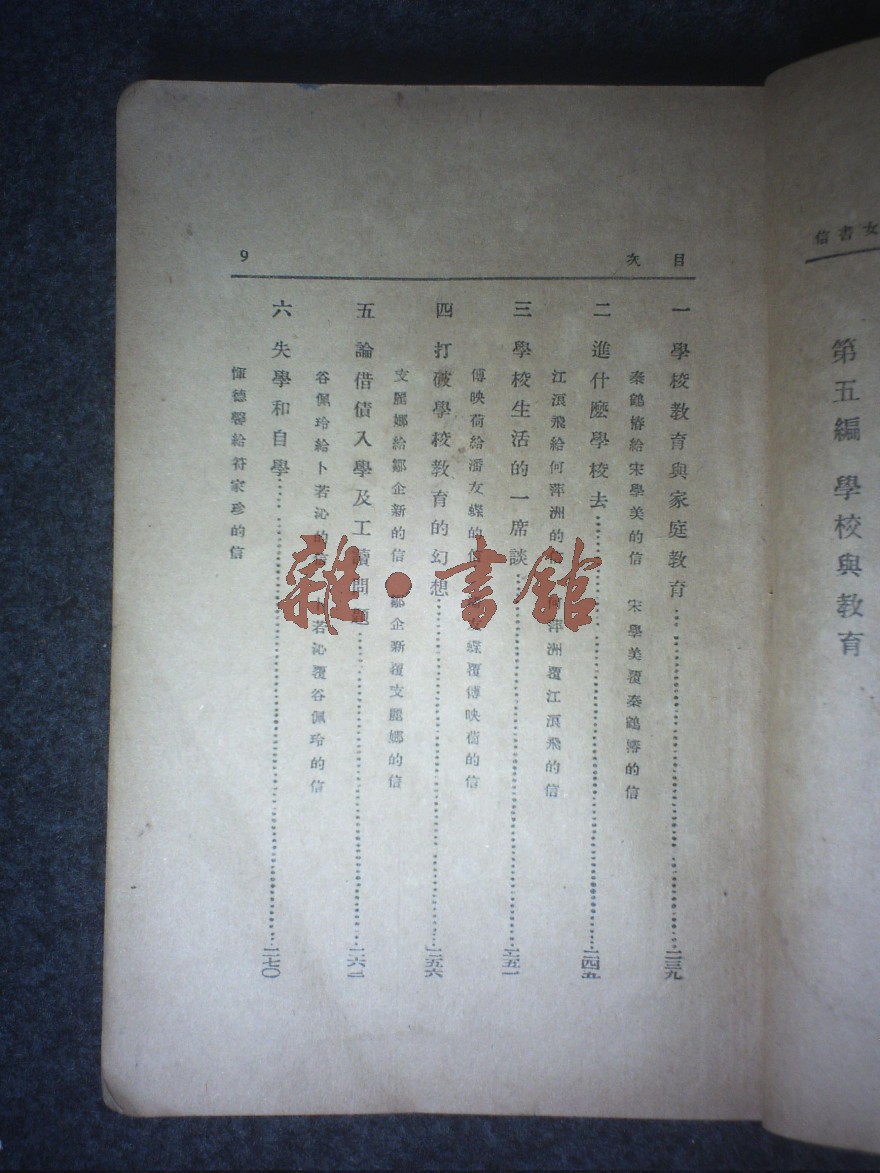 女書信
第五編 學校與教育
目次
9
一 學校教育與家庭教育……二三九
秦鶴椿給宋學美的信 宋學美覆秦鶴椿的信
二 進什麽學校去……二四五
江浪飛給何萍洲的信 何萍洲覆江浪飛的信
三 學校生活的一席談……二五一
傅映荷給潘友蝶的信 潘友蝶覆傅映荷的信
四 打破學校教育的幻想……二五六
支麗娜給鄒企新的信 鄒企新覆支麗娜的信
五 論借債入學及工讀問題……二六
谷佩玲給卜若沁的信 卜若沁覆谷佩玲的信
六 失學和自學……二七〇
惲德馨給符家珍的信
雜·書館